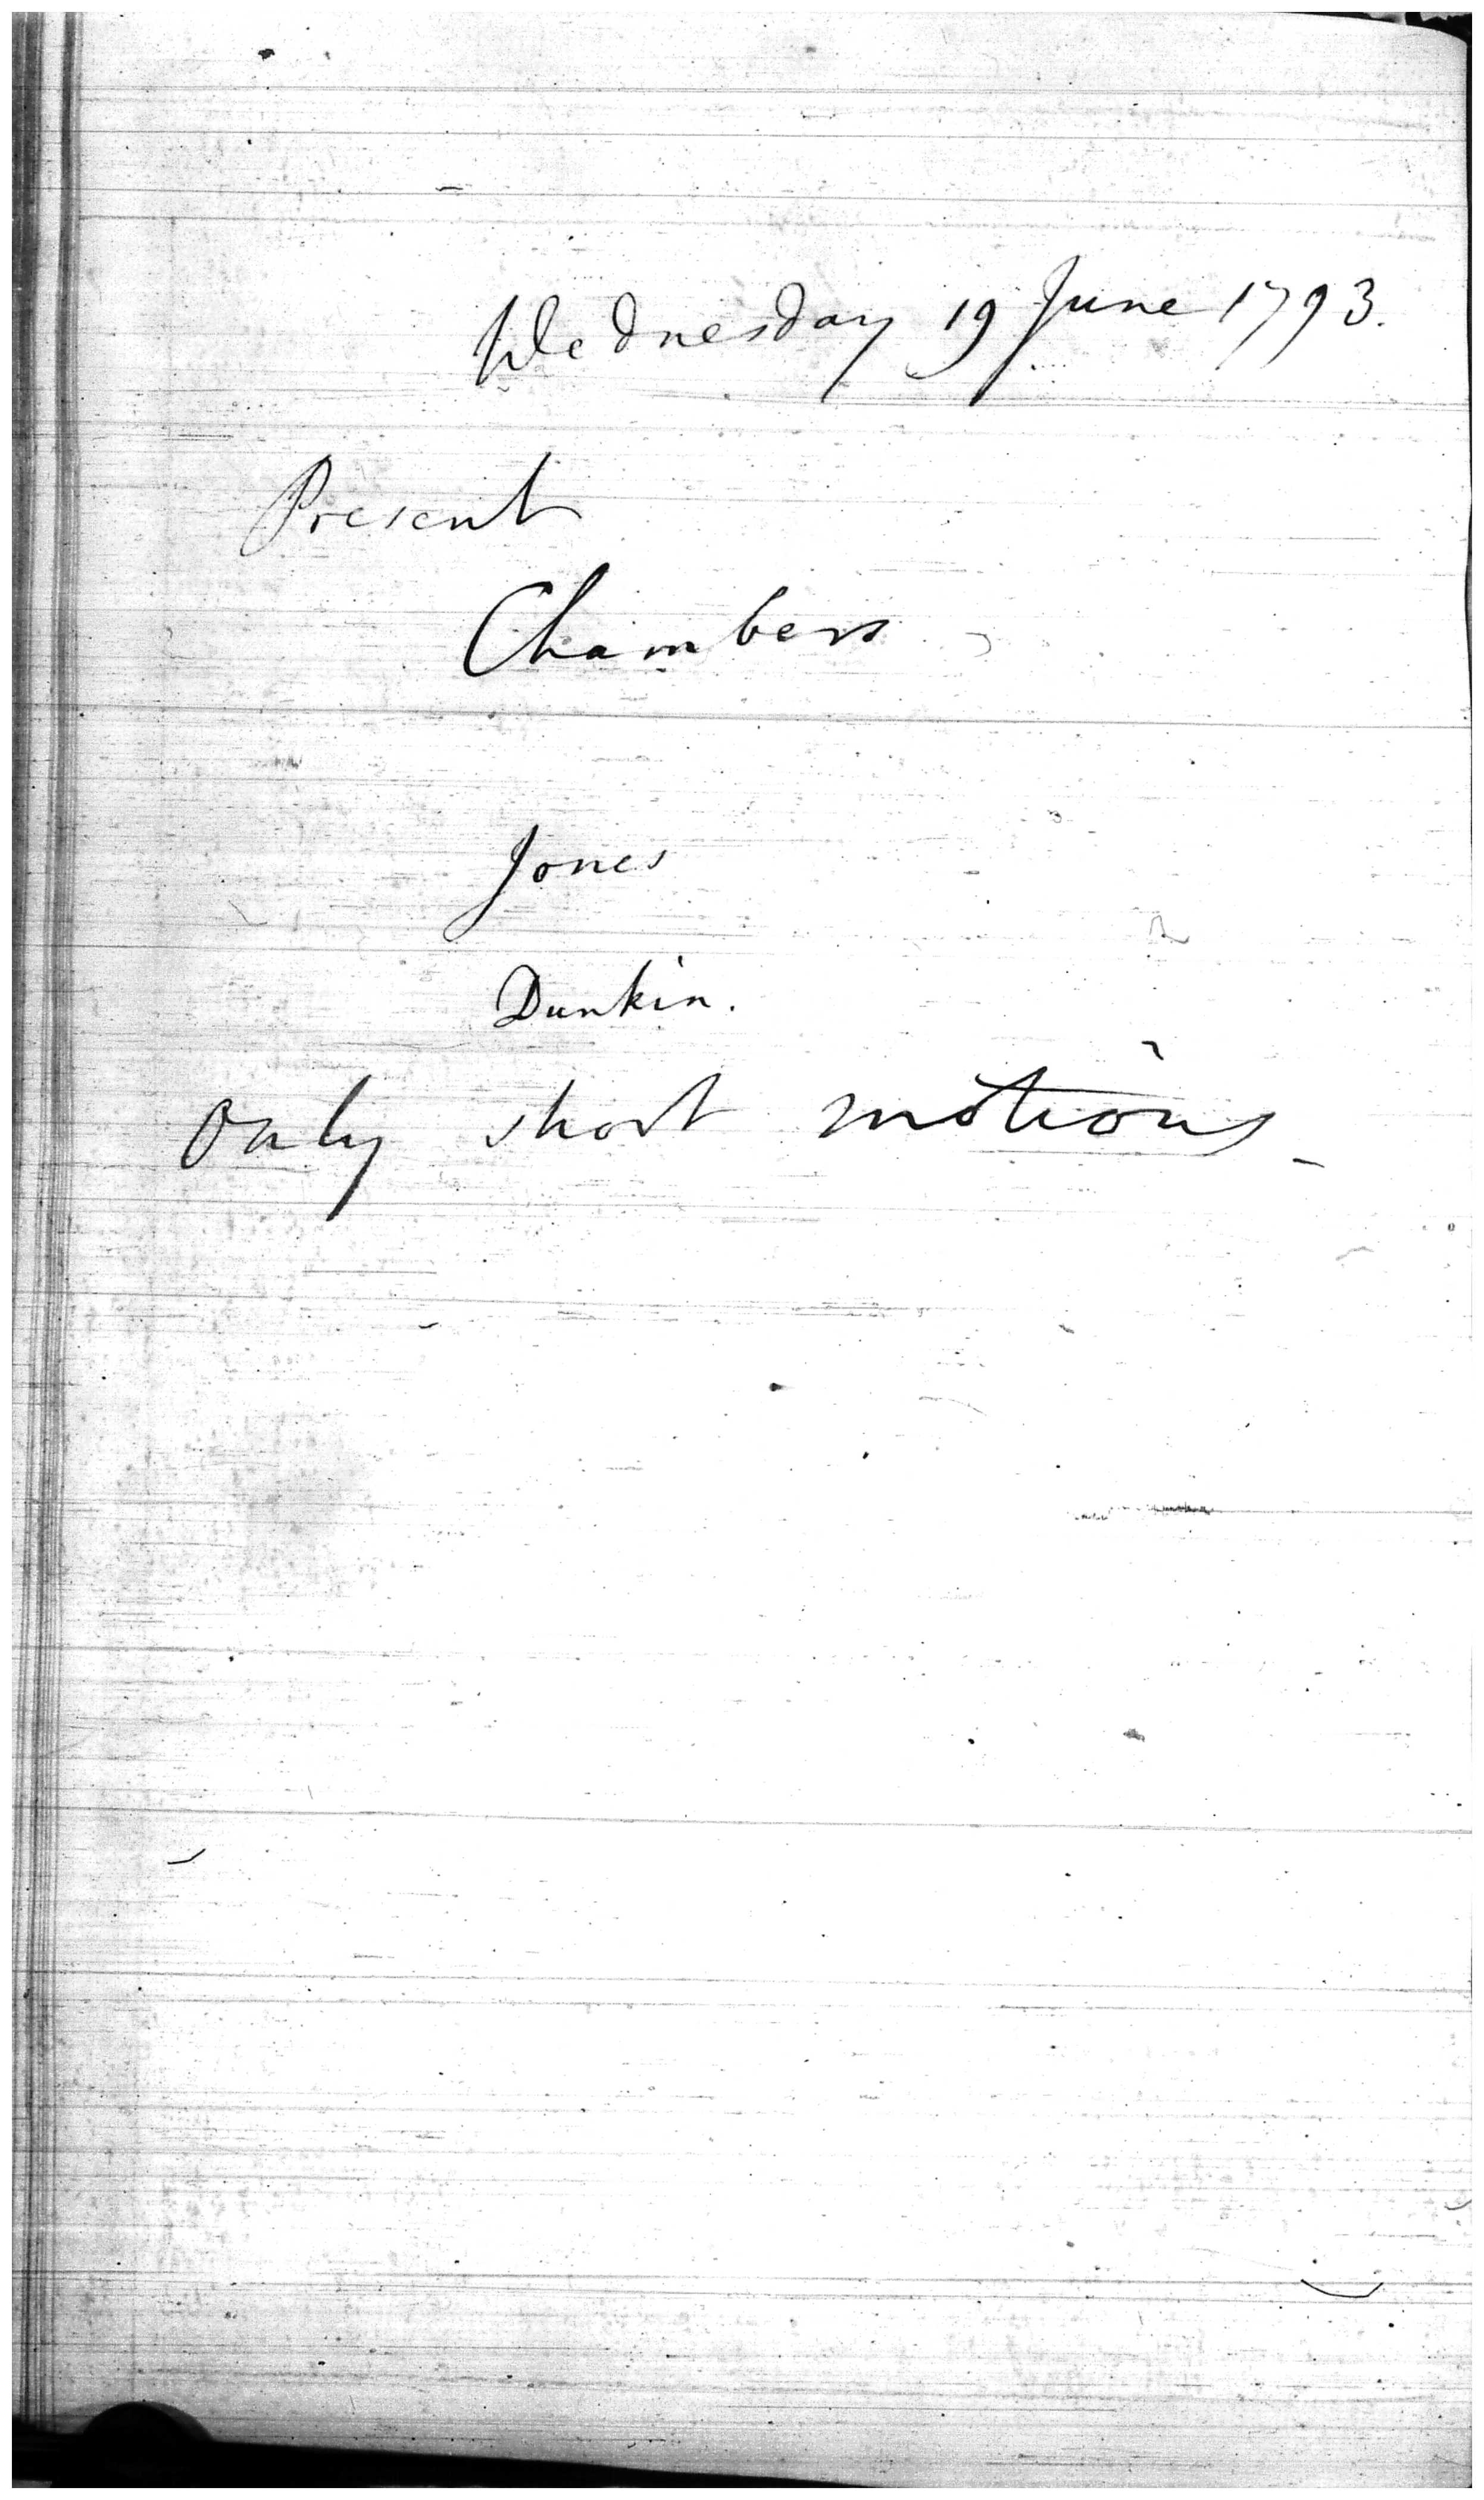 Wednesday 19 June 1793.
Present
Chambers
Jones
Dunkin.
Only short motions_